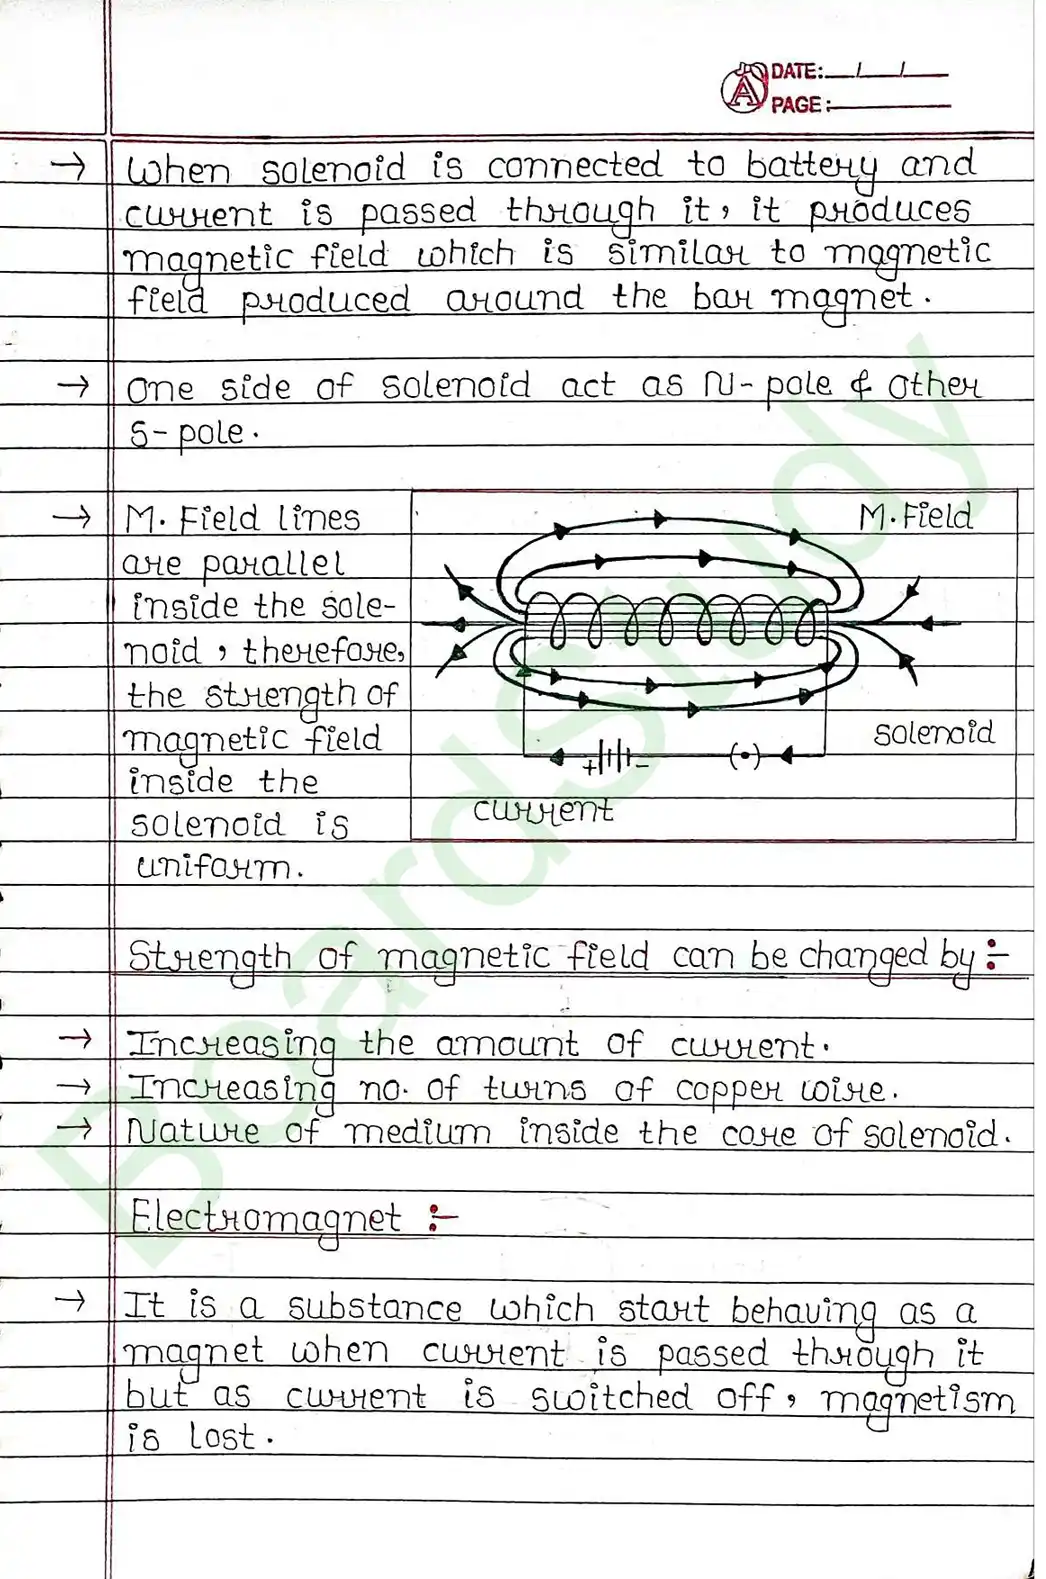 DATE: __/__/__
PAGE:
→ When solenoid is connected to battery and
current is passed through it, it produces
magnetic field which is similar to magnetic
field produced around the bar magnet.
→ One side of solenoid act as N-pole & other
S-pole.
→ M. Field lines
are parallel
inside the sole-
noid, therefore,
the strength of
magnetic field
inside the
solenoid is
uniform.
M. Field
solenoid
+ -
(•)
current
Strength of magnetic field can be changed by :-
→ Increasing the amount of current.
→ Increasing no. of turns of copper wire.
→ Nature of medium inside the core of solenoid.
Electromagnet :-
→ It is a substance which start behaving as a
magnet when current is passed through it
but as current is switched off, magnetism
is lost.
BoardStudy